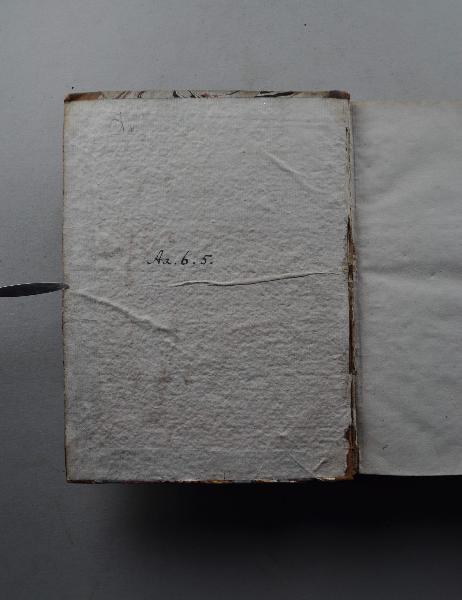 Aa. 6. 5.